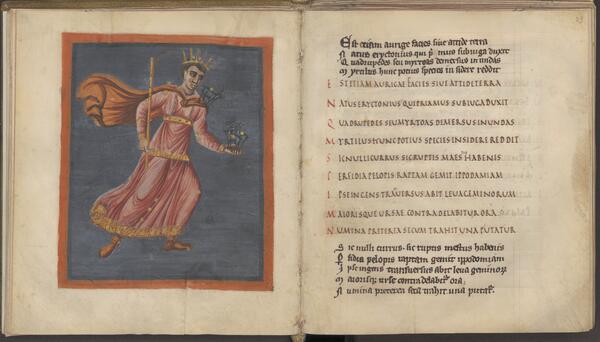 Est etiam aurige facies siue attide terra
Natus erychtonius qui pmus sub iuga duxit
Quadrupedes seu myrtoas demersus in undas
Myrtilus hunc potius species in sidere reddit
ESTETIAM AURIGAE FACIES SIVE ATTIDE TERRA
NATUS ERYCTONIUS QUI PRIAMUS SUBIUGA DUXIT
QUADRUPEDES SEU MYRTOAS DEMERSUS IN UNDAS
MYRTILUS HUNC POTIUS SPECIES IN SIDERE REDDIT
SIC NULLI CURRUS SIC RUPTIS MAESTUS HABENIS
PERFIDIA PELOPIS RAPTAM GEMIT IPPODAMIAM
IPSE INGENS TRANSVERSUS ABIT LEUA GEMINORUM
MAIORISQUE URSAE CONTRA DELABITUR ORA
NUMINA PRETEREA SECUM TRAHIT UNA PUTATUR
Sic nulli currus. sic ruptis mestus habenis
pelopis raptam gemit ippodamiam
Ipse ingens transuersus abit leua geminoꝝ
Maiorisq; urse contra delabitʳ ora;
Numina preterea secū trahit una putatʳ.